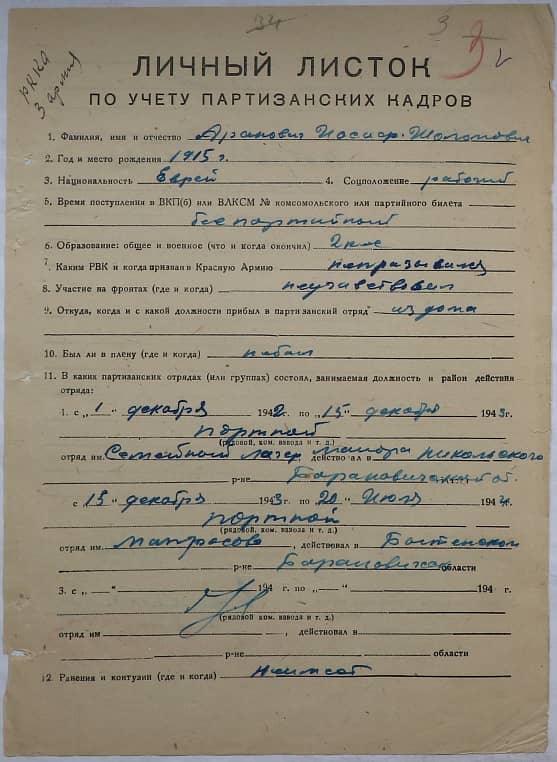 34 3
РККА
3 армия
ЛИЧНЫЙ ЛИСТОК
ПО УЧЕТУ ПАРТИЗАНСКИХ КАДРОВ
1. Фамилия, имя и отчество Аранович Иосиф Шоломович
2. Год и место рождения 1915 г.
3. Национальность Еврей 4. Соцположение рабочий
5. Время поступления в ВКП(б) или ВЛКСМ № комсомольского или партийного билета
беспартийный
6. Образование: общее и военное (что и когда окончил) 2 клс
7. Каким РВК и когда призван в Красную Армию непризывался
8. Участие на фронтах (где и когда) неучавствовал
9. Откуда, когда и с какой должности прибыл в партизанский отряд из дома
10. Был ли в плену (где и когда) небыл
11. В каких партизанских отрядах (или группах) состоял, занимаемая должность и район действия
отряда:
1. с „1“ декабря 1942 г. по „15“ декабря 1943 г.
портной
(рядовой, ком. взвода и т. д.)
отряд им. Семейный лагер майора Никольского, действовал в
р-не Барановичский об.
с 15 декабря 1943 г по 20 Июля 1944.
портной
(рядовой, ком. взвода и т. д.)
отряд им. Матросова, действовал в
р-не Барановичск области
3. с „—“ 194 г. по „—“ 194 г.
(рядовой, ком. взвода и т. д.)
отряд им , действовал в
р-не области
12. Ранения и контузии (где и когда) неимеет